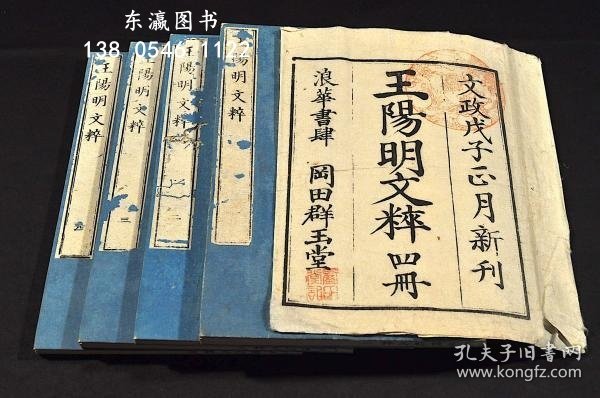 东瀛图书
文政戊子正月新刊
王陽明文粹 四冊
浪華書肆 岡田群玉堂
王陽明文粹
陽明文粹
王陽明文粹 二
陽明文粹
孔夫子旧书网
www.kongfz.com